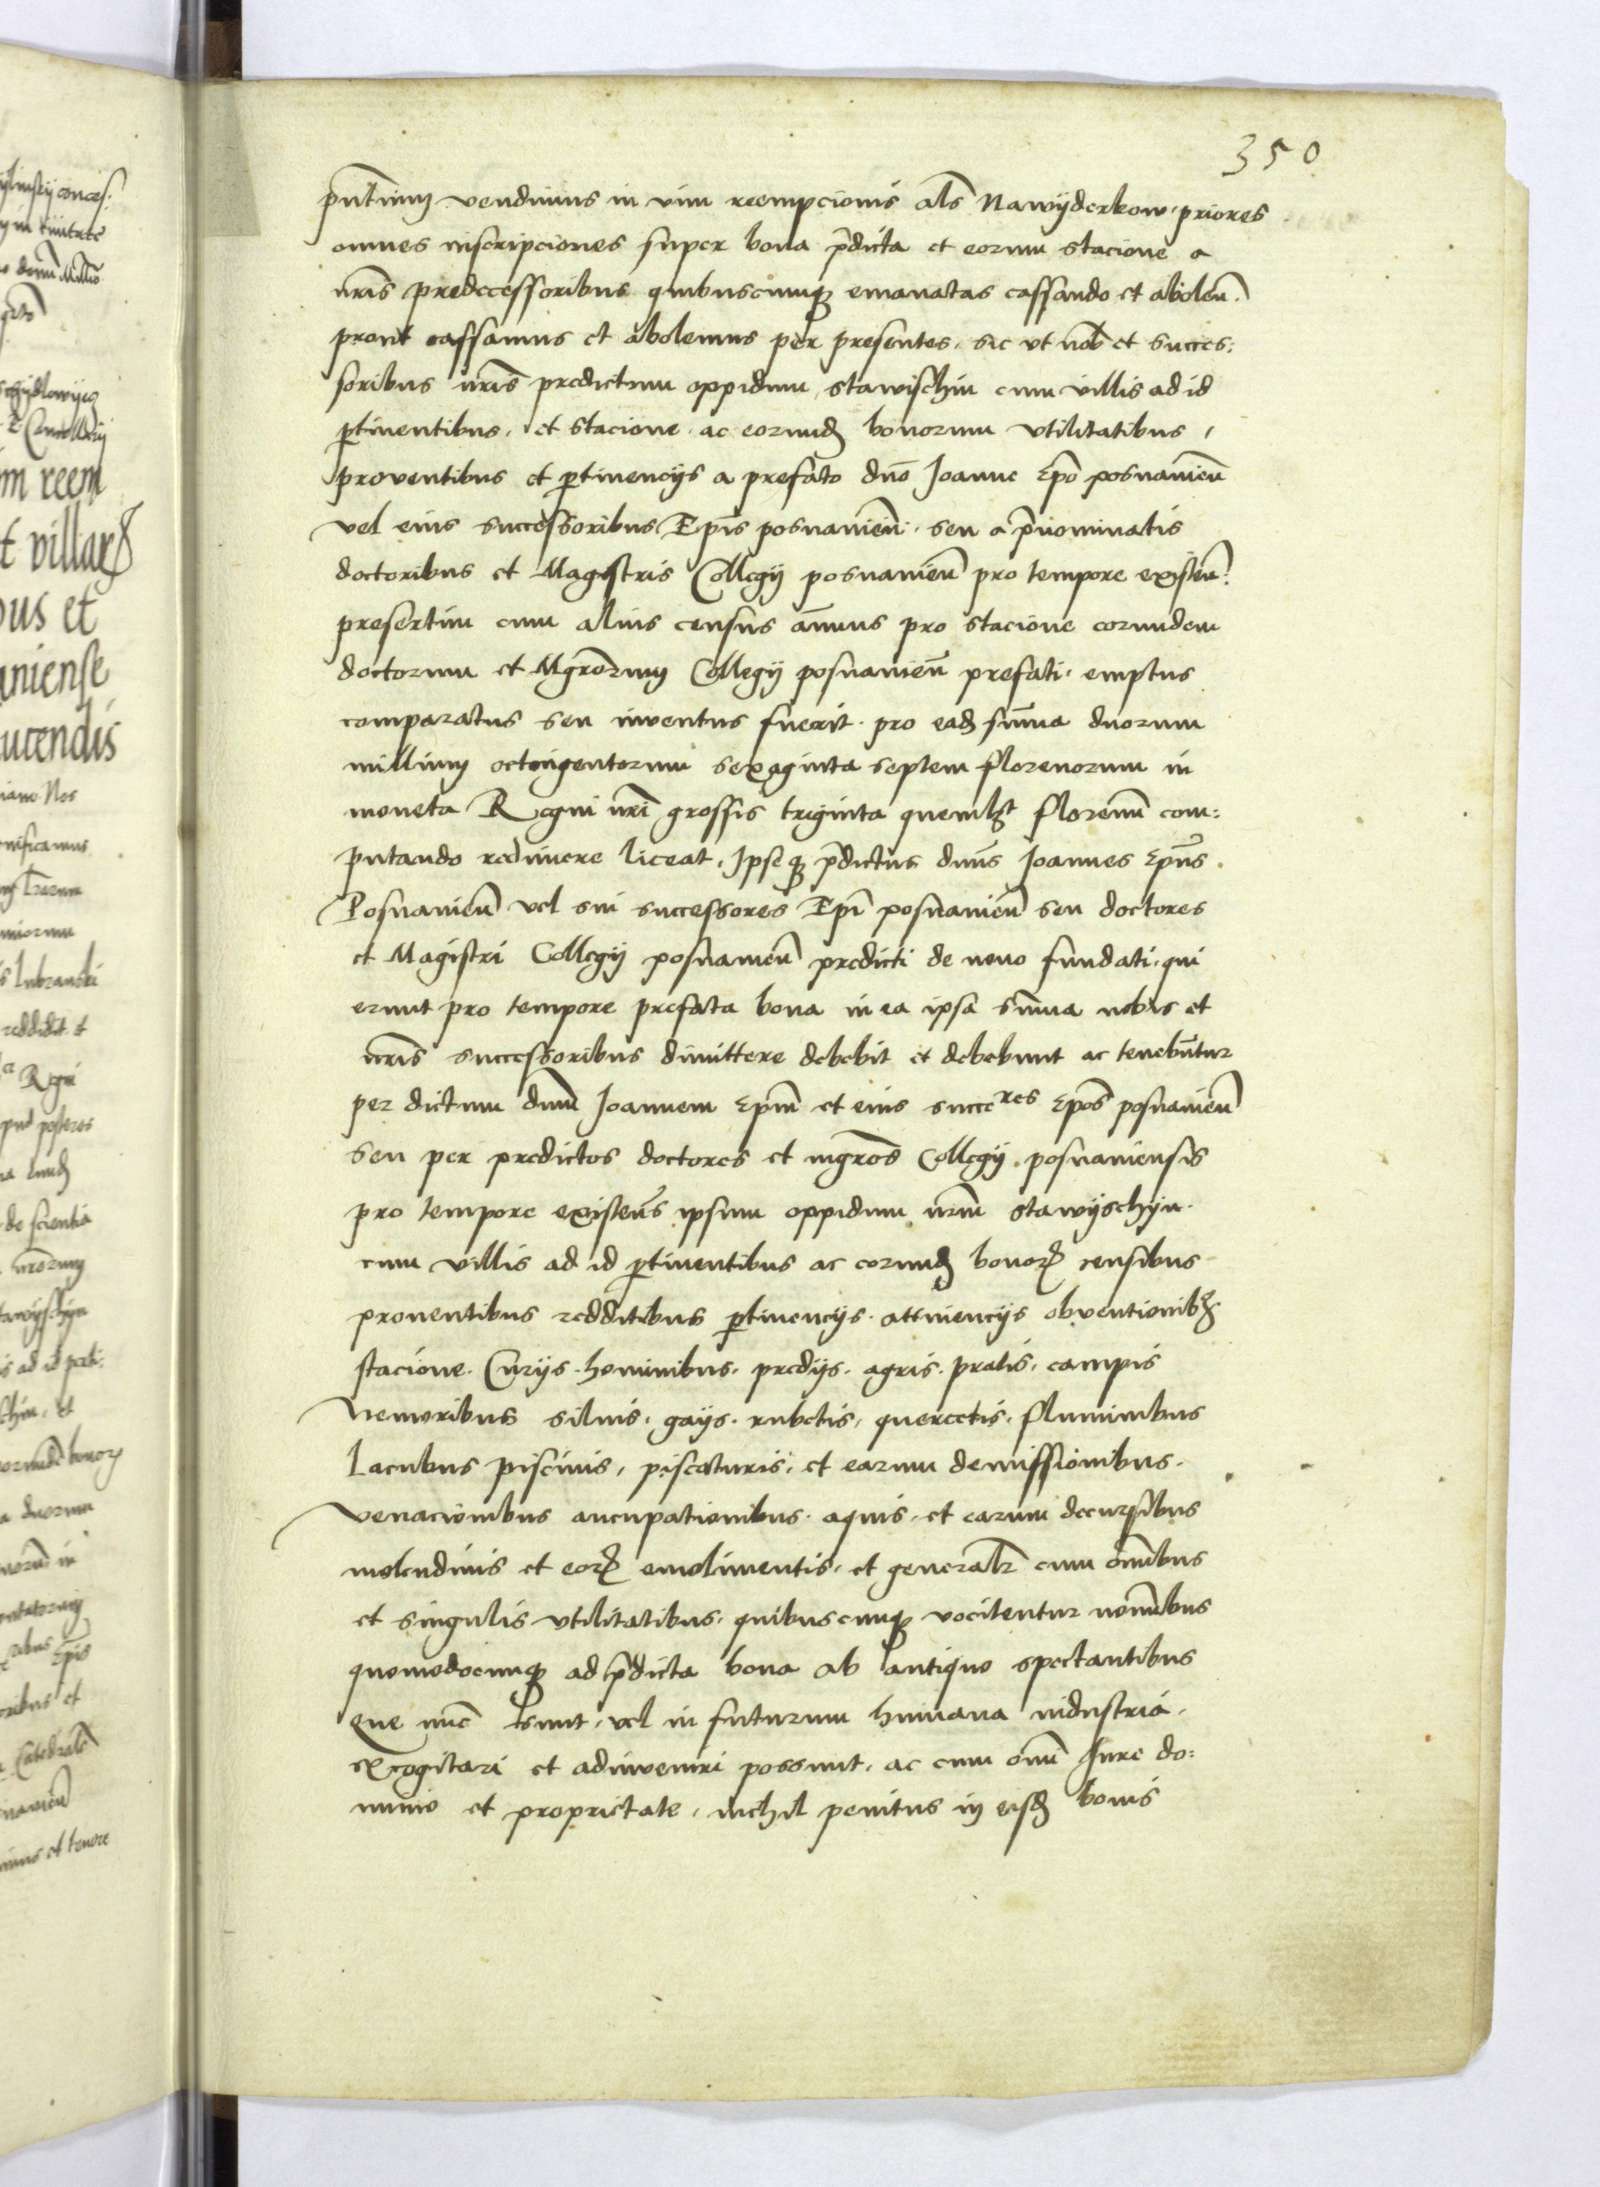 350
pñtium vendimus in vim reempcionis als Nawyderkow, priores
omnes inscripciones super bona p̄dicta et eorum stacione a
nr̄is predecessoribus quibuscumq3 emanatas cassando et abolen̄.
prout cassamus et abolemus per presentes. sic ut nob et succes:
soribus nr̄is predictum oppidum stawischin cum villis ad id
ptinentibus, et stacione ac eorumd bonorum utilitatibus,
proventibus et ptinencijs a prefato dn̄o Joanne Ep̄o posnanien̄
vel eius successoribus Ep̄is posnanien̄. seu a p̄nominatis
doctoribus et Magistris Collegij posnanien̄ pro tempore existen̄.
presertim cum alius census annuus pro stacione eorumdem
doctorum et Mgr̄orum Collegij posnanien̄ prefati, emptus
comparatus seu inventus fuerit. pro ead sum̄a duorum
millium octingentorum sexaginta septem florenorum in
moneta Regni nr̄i grossis triginta quemlt florenum com:
putando redimere liceat, Ipseq3 p̄dictus dn̄us Joannes Ep̄us.
Posnanien̄ vel sui successores Ep̄i posnanien̄ seu doctores
et Magistri Collegij posnanien̄ predicti de novo fundati, qui
erunt pro tempore prefata bona in ea ipsa sum̄a nobis et
nr̄is successoribus dimittere debebit et debebunt ac tenebūtur
per dictum dn̄um Joannem Ep̄um et eius succeres Ep̄os posnanien̄
seu per predictos doctores et mgr̄os Collegij posnaniensis
pro tempore existen̄s ipsum oppidum nr̄um stawyschyn.
cum villis ad id ptinentibus ac eorumd bonor censibus
proventibus redditibus ptinencijs. attinencijs obventionib3
stacione. Curijs. hominibus. predijs. agris. pratis, campis
Nemoribus silvis, gays. rubetis, quercetis, fluminibus
Lacubus piscinis, piscaturis, et earum demissionibus.
venacionibus aucupationibus. aquis, et earum decursibus
molendinis et eor emolimentis, et generalr cum om̄ibus
et singulis utilitatibus, quibuscumq3 vocitentur nom̄ibus
quomodocumq3 ad p̄dicta bona ab antiquo spectantibus
Que nūc sunt, vel in futurum humana industria.
excogitari et adinveniri possunt, ac cum om̄i Jure do:
minio et proprietate, nichil penitus in eisd bonis